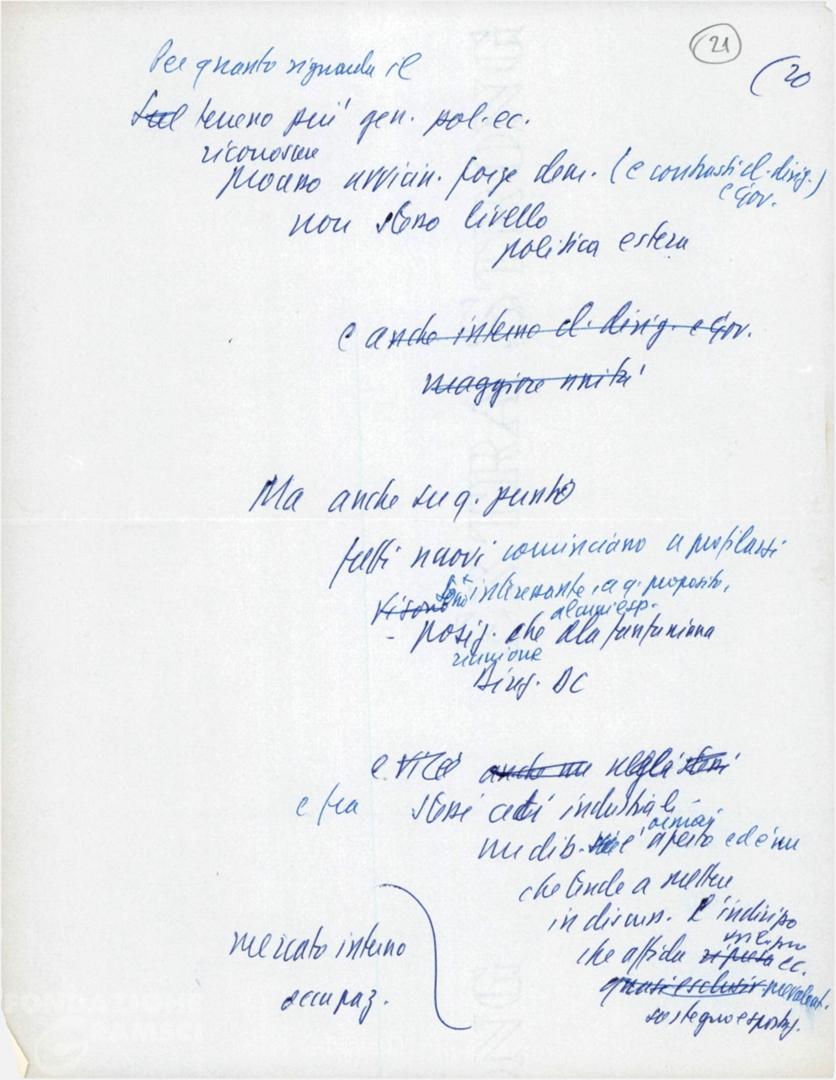 21
(20
Per quanto riguarda il
Sul terreno più gen. pol. ec.
riconoscere
meno avvicin. forze dem. (e contrasti d. dirig.)
e Gov.
non stesso livello
politica estera
e anche interno d. dirig. e Gov.
maggiore unità
Ma anche su q. punto
fatti nuovi cominciano a profilarsi
Sono interessante, a q. proposito,
Vi sono alcuni esp.
- posiz. che ala fanfaniana
riunione
Direz. DC
e negli stessi
e fra stessi ceti industriali
un dib. è ormai aperto ed è un
che tende a mettere
in discuss. l'indirizzo
che affida ripresa sviluppo ec.
quasi esclusiv. prevalent.
sostegno esportaz.
mercato interno
occupaz.
FONDAZIONE
GRAMSCI